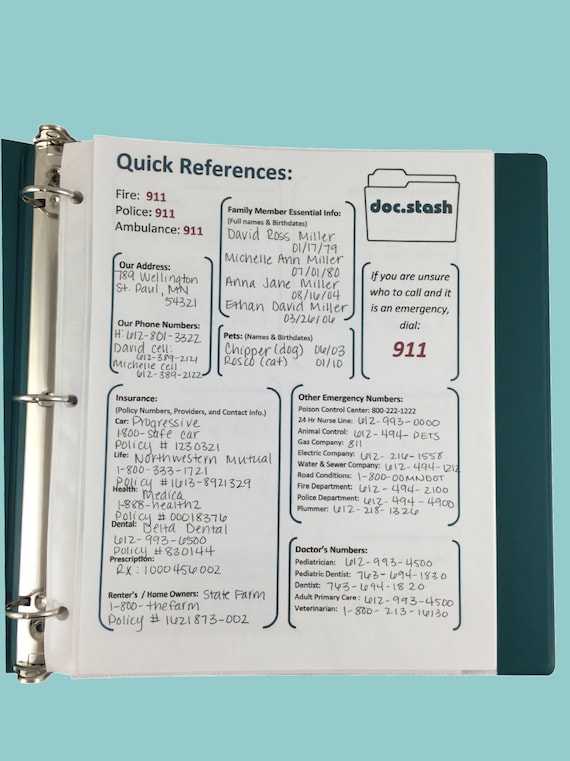 Quick References:
doc.stash
Fire: 911
Police: 911
Ambulance: 911
Family Member Essential Info:
(Full names & Birthdates)
David Ross Miller
01/17/79
Michelle Ann Miller
07/01/80
Anna Jane Miller
08/16/04
Ethan David Miller
03/26/06
Our Address:
789 Wellington
St. Paul, MN
54321
Our Phone Numbers:
H: 612-801-3322
David cell:
612-389-2121
Michelle cell:
612-389-2122
Pets: (Names & Birthdates)
Chipper (dog) 06/03
Rosco (cat) 01/10
If you are unsure
who to call and it
is an emergency,
dial:
911
Insurance:
(Policy Numbers, Providers, and Contact Info.)
Car: Progressive
1800-safe car
Policy # 1230321
Life: Northwestern Mutual
1-800-333-1721
Policy #1613-8921329
Health: Medica
1-888-health2
Policy # 00018376
Dental: Delta Dental
612-993-6500
Policy # 830144
Prescription:
Rx: 1000456002
Renter's / Home Owners: State Farm
1-800-thefarm
Policy # 1621873-002
Other Emergency Numbers:
Poison Control Center: 800-222-1222
24 Hr Nurse Line: 612-993-0000
Animal Control: 612-494-PETS
Gas Company: 811
Electric Company: 612-216-1558
Water & Sewer Company: 612-494-1212
Road Conditions: 1-800-00MNDOT
Fire Department: 612-494-2100
Police Department: 612-494-4900
Plummer: 612-218-1326
Doctor's Numbers:
Pediatrician: 612-993-4500
Pediatric Dentist: 763-694-1830
Dentist: 763-694-1820
Adult Primary Care: 612-993-4500
Veterinarian: 1-800-213-16130